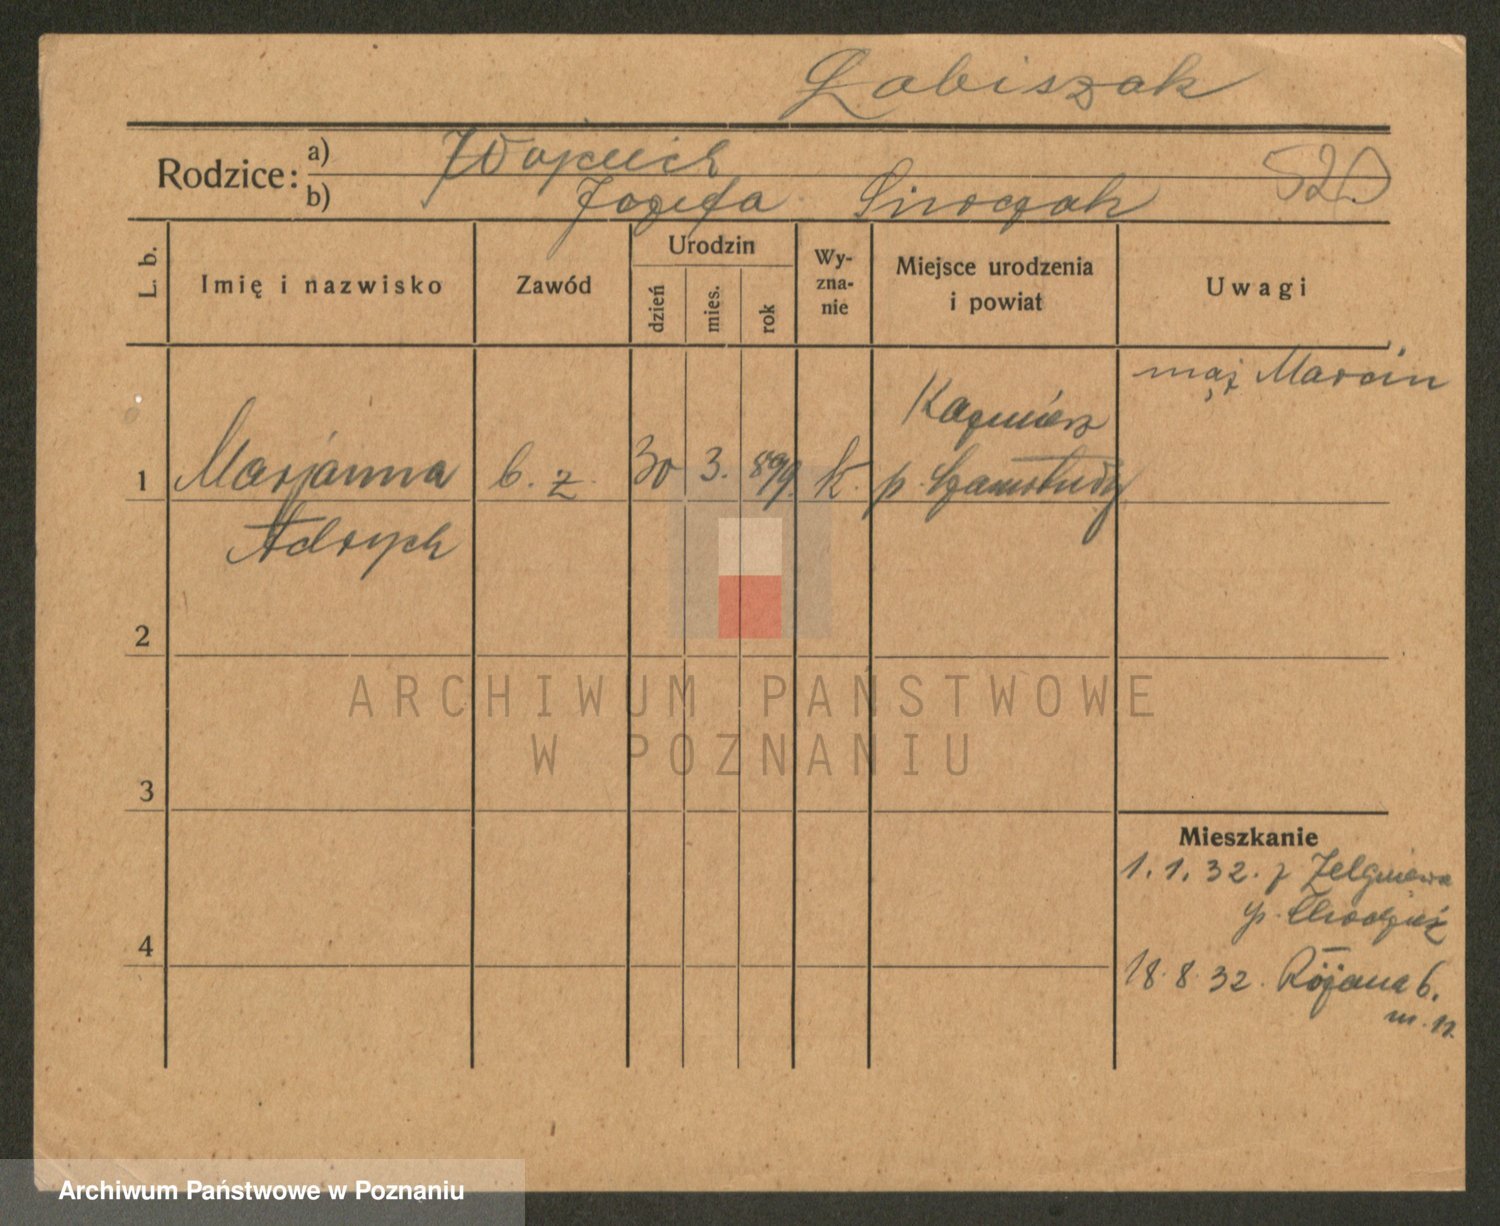 Łabiszak
Rodzice: a) Wojciech
b) Józefa Siroczak
520
L. b.
Imię i nazwisko
Zawód
Urodzin
dzień
mies.
rok
Wy-
zna-
nie
Miejsce urodzenia
i powiat
Uwagi
mąż Marcin
Kazmierz
1 Marjanna b. z. 30 3. 899. k. p. Szamotuły
Adrych
2
3
4
Mieszkanie
1. 1. 32. z Zelgniewa
p. Chodzież
18. 8. 32. Różana 6.
m. 12.
ARCHIWUM PAŃSTWOWE
W POZNANIU
Archiwum Państwowe w Poznaniu